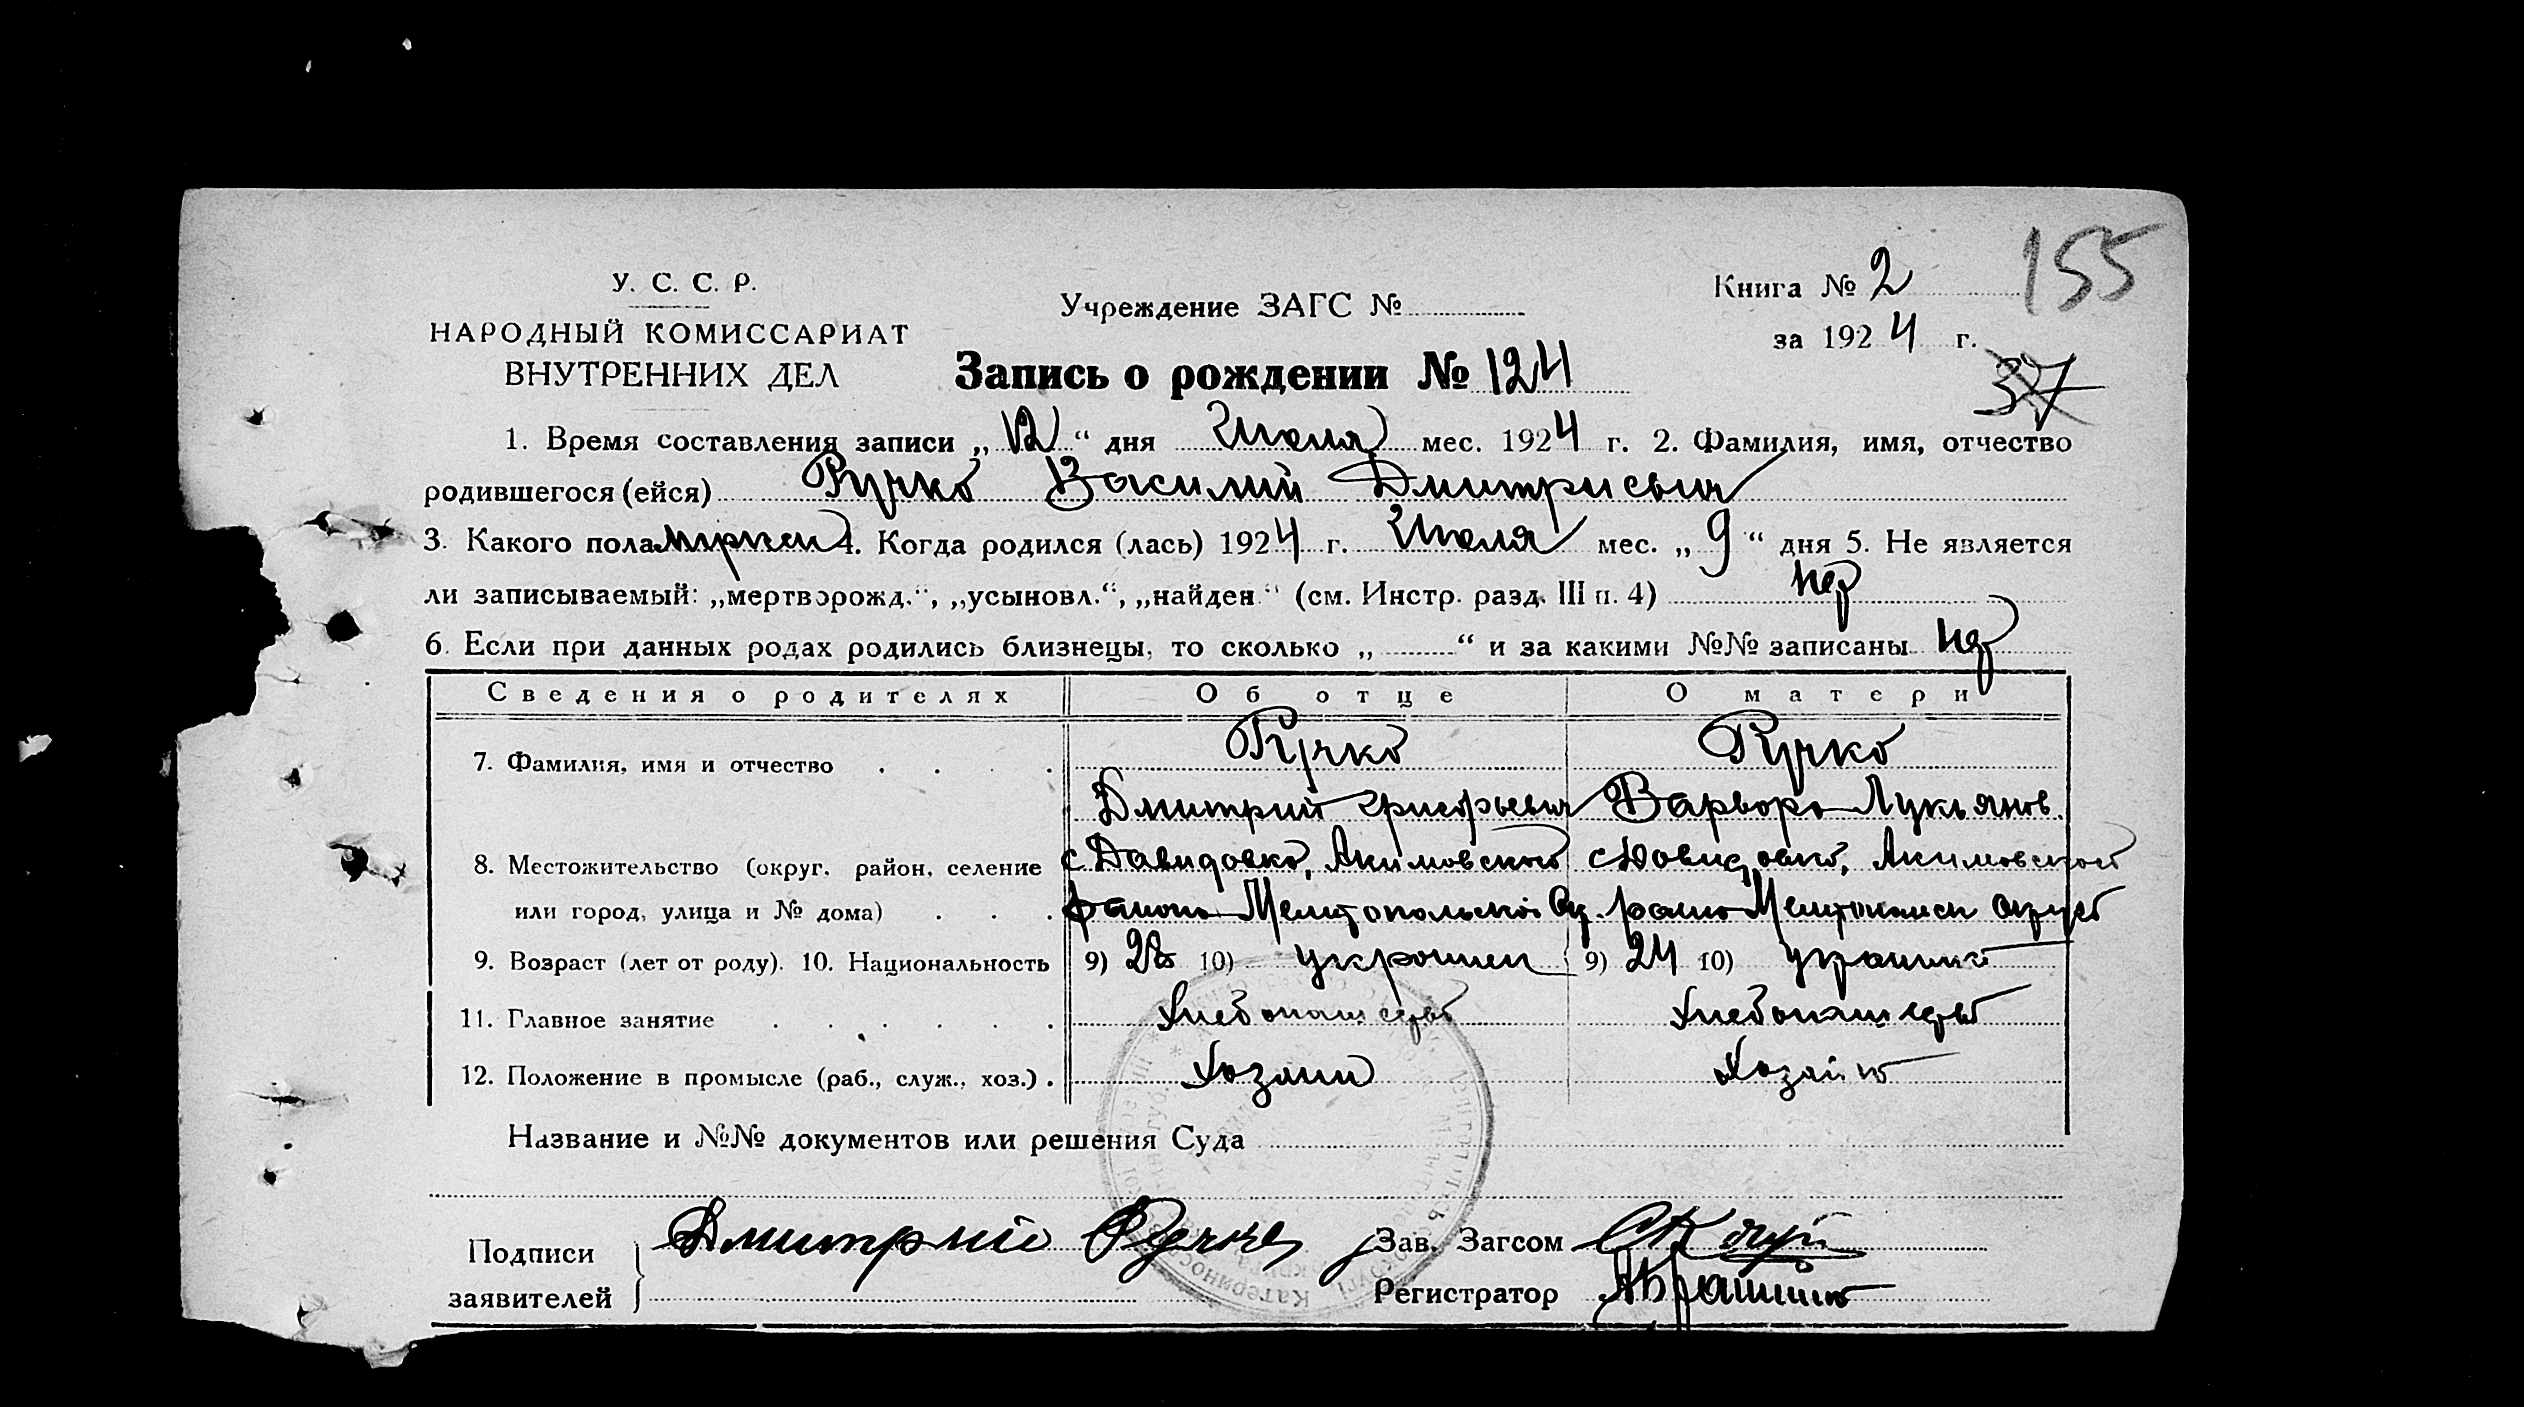 155
У. С. С. Р.
НАРОДНЫЙ КОМИССАРИАТ
ВНУТРЕННИХ ДЕЛ
Учреждение ЗАГС №
Книга № 2
за 1924 г.
37
Запись о рождении № 124
1. Время составления записи „12“ дня Июля мес. 1924 г. 2. Фамилия, имя, отчество
родившегося (ейся) Ручко Василий Дмитриевич
3. Какого пола мужск 4. Когда родился (лась) 1924 г. Июля мес. „9“ дня 5. Не является
ли записываемый: „мертворожд.“, „усыновл.“, „найден.“ (см. Инстр. разд. III п. 4) нет
6. Если при данных родах родились близнецы, то сколько „ “ и за какими №№ записаны нет
Сведения о родителях Об отце О матери
7. Фамилия, имя и отчество Ручко Ручко
Дмитрий Григорьевич Варвара Лукьянов.
8. Местожительство (округ, район, селение с. Давидовка, Акимовского с. Давидовка, Акимовского
или город, улица и № дома) района Мелитопольской Ок. района Мелитопольск округа
9. Возраст (лет от роду). 10. Национальность 9) 28 10) украинец 9) 24 10) украинка
11. Главное занятие Хлебопашество Хлебопашество
12. Положение в промысле (раб., служ., хоз.) Хозяин Хозяйка
Название и №№ документов или решения Суда
Подписи
заявителей
Дмитрий Ручко
Зав. Загсом
Регистратор